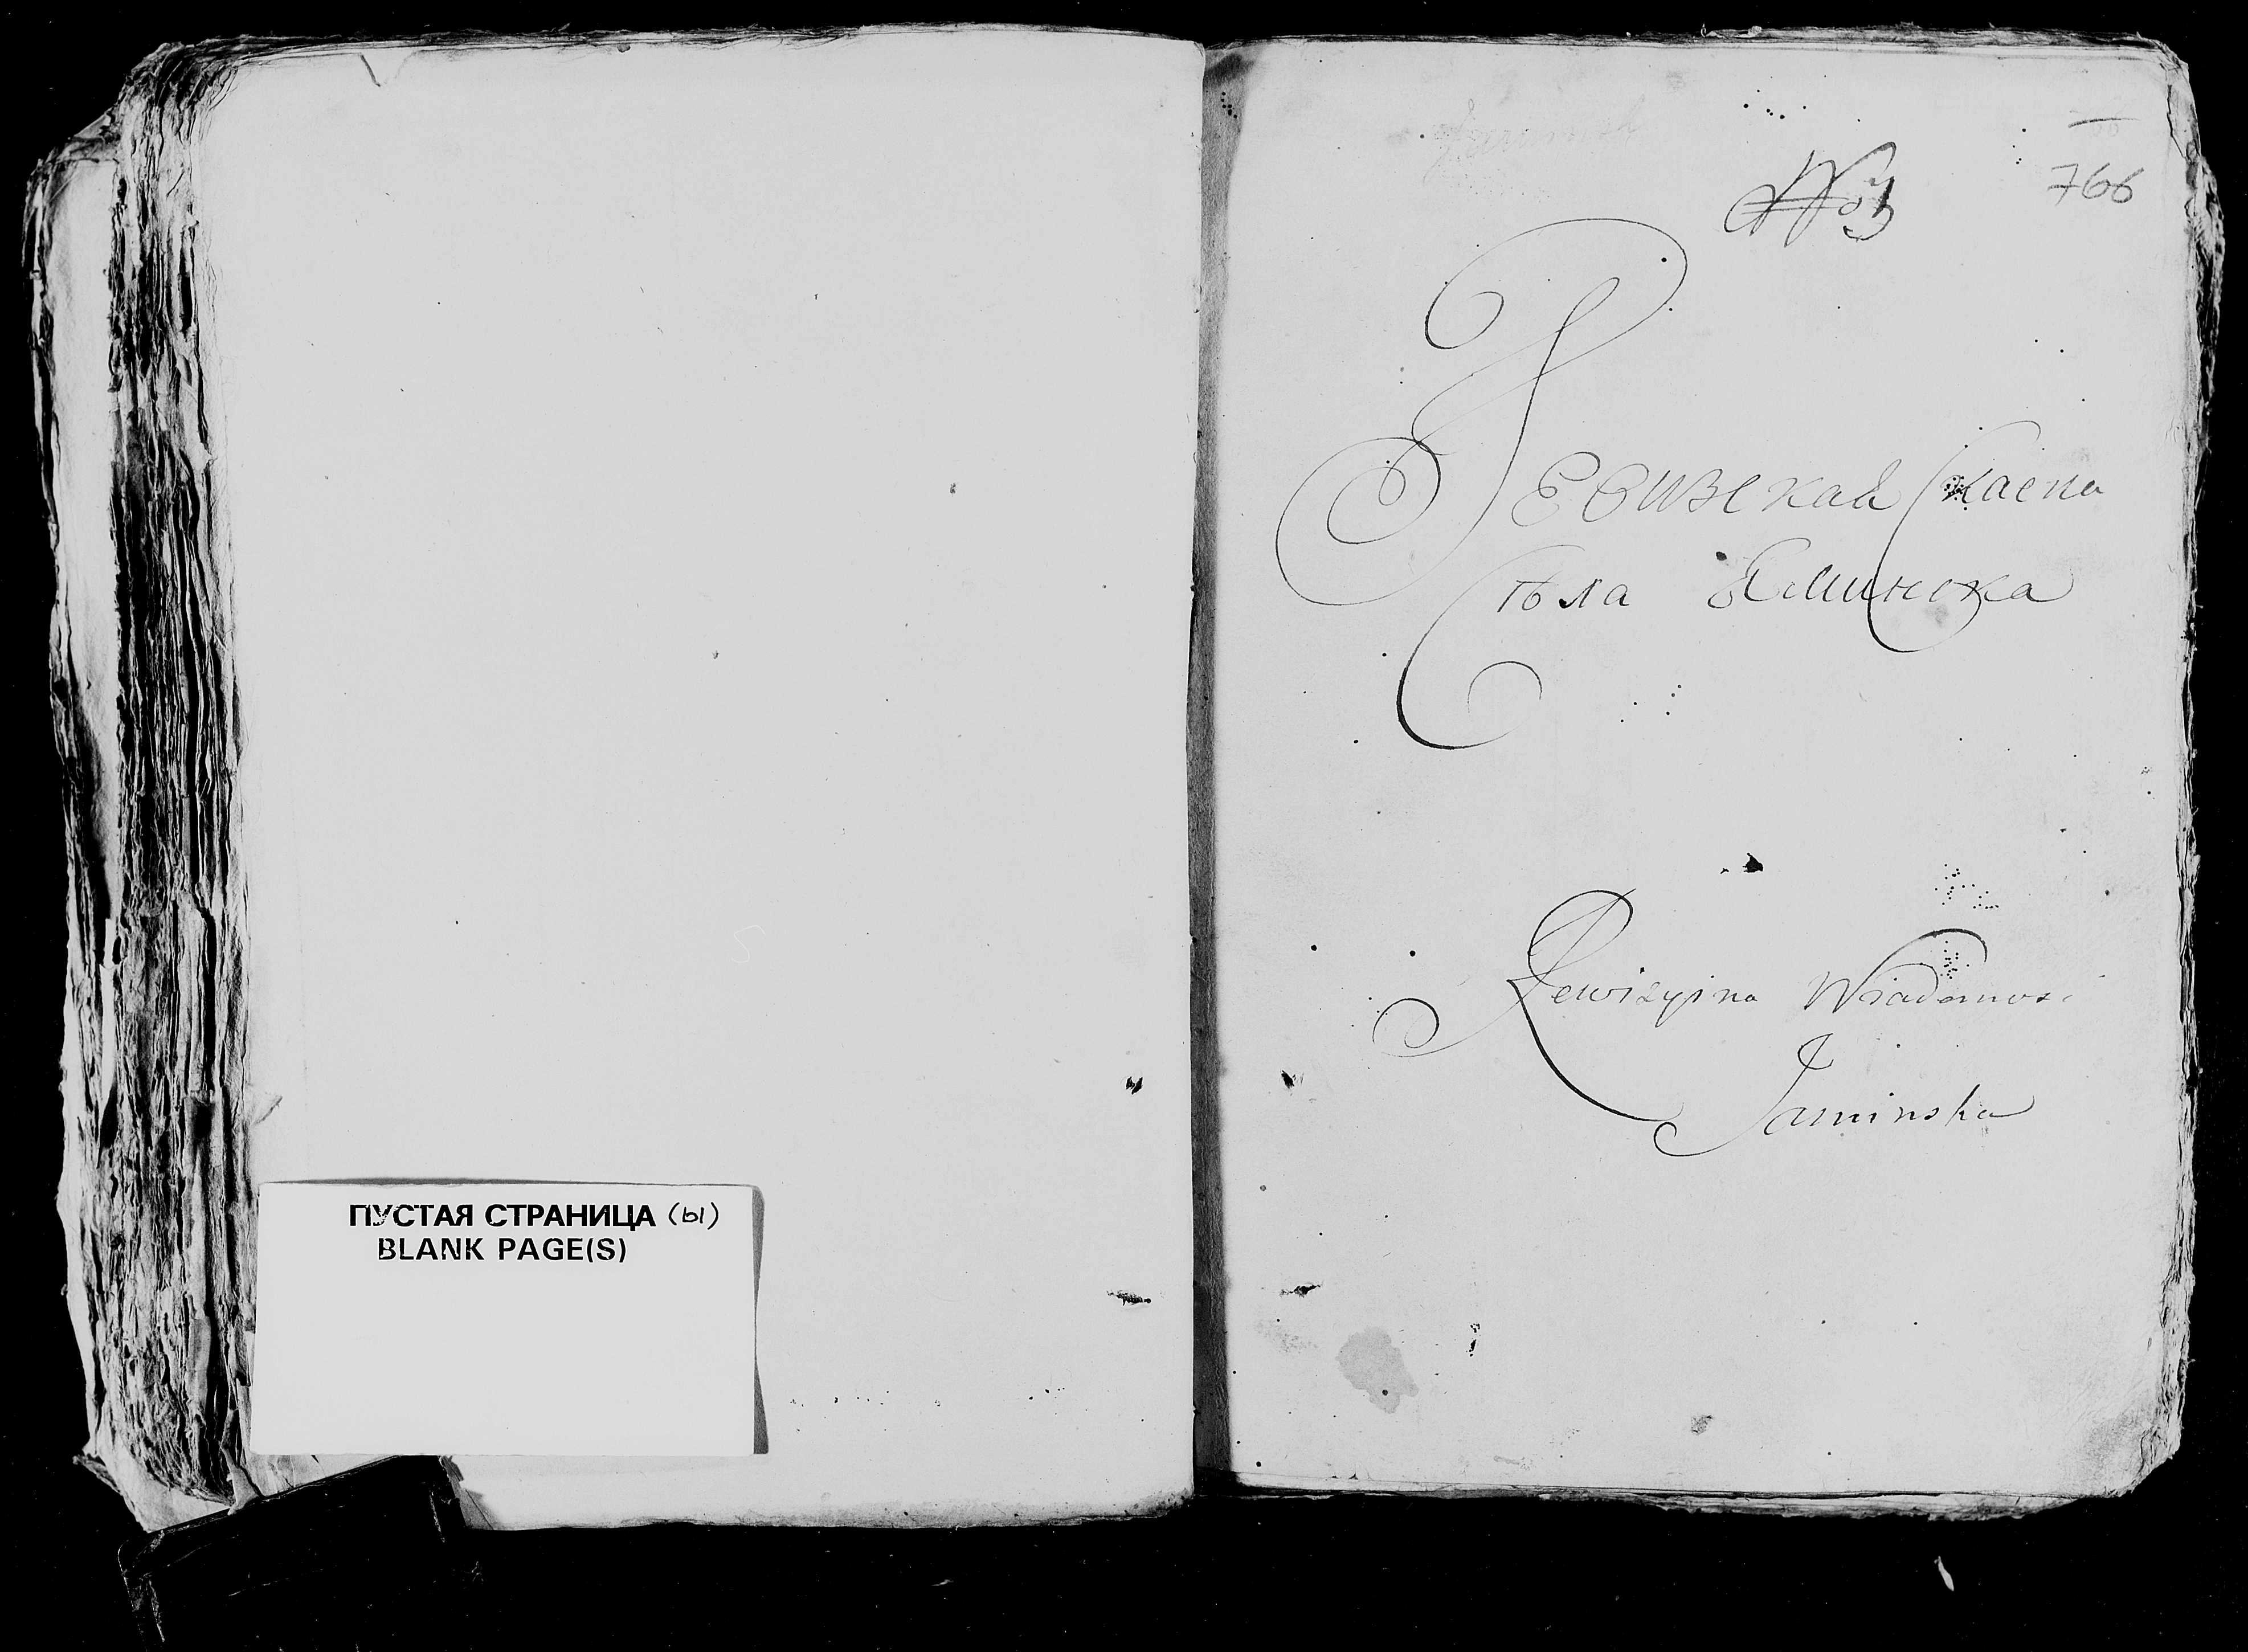 ПУСТАЯ СТРАНИЦА (ы)
BLANK PAGE(S)
766
Ревизская Скаска
Села Яминска
Rewizyina Wiadomosc
Jaminska